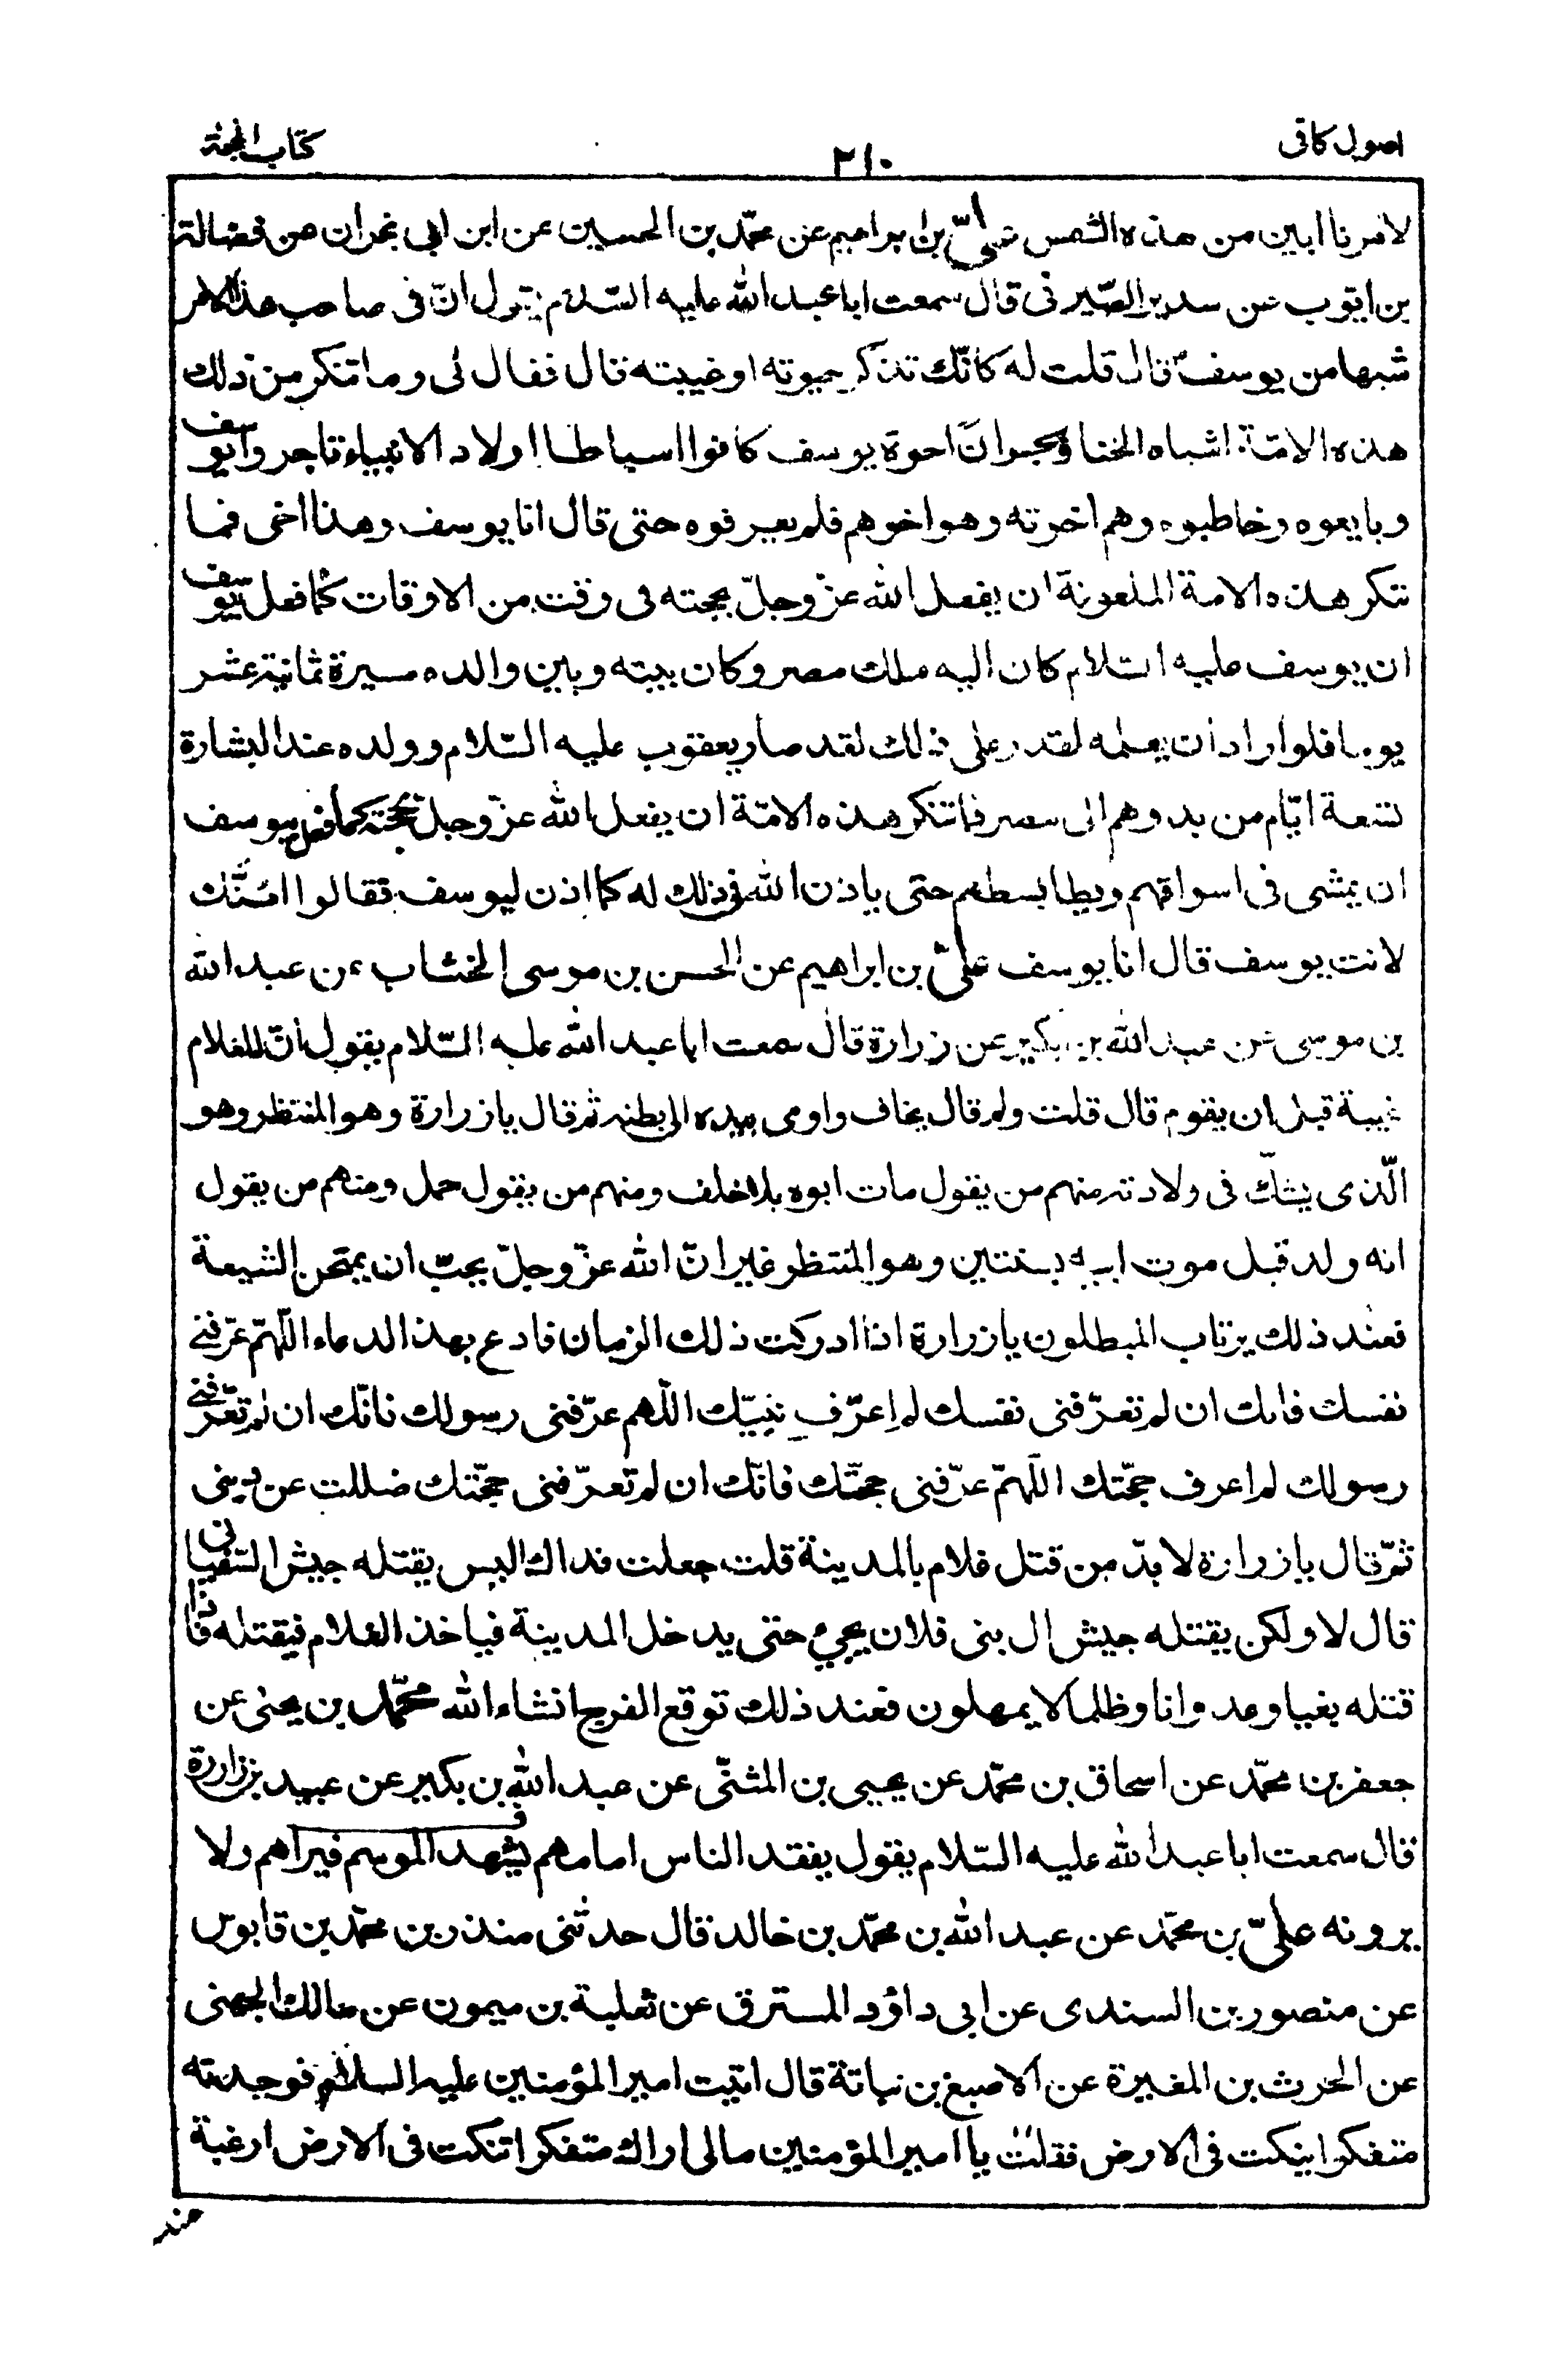 اصول کافی
۲۱۰
کتاب الحجة
لامرنا ابین من هذه الشمس علیّ بن ابراهیم عن محمّد بن الحسین عن ابن ابی نجران عن فضالة
بن ایّوب عن سدیر الصّیرفی قال سمعت ابا عبد الله علیه السّلام یقول انّ فی صاحب هذا الامر
شبها من یوسف قال قلت له کانّک تذکر حیوته او غیبته قال فقال لی وما تنکر من ذلك
هذه الامّة اشباه الخنازیر انّ اخوة یوسف کانوا اسباطا اولاد الانبیاء تاجروا یوسف
وبایعوه وخاطبوه وهم اخوته وهو اخوهم فلم یعرفوه حتی قال انا یوسف وهذا اخی فما
تنکر هذه الامة الملعونة ان یفعل الله عزّ وجلّ بحجته فی وقت من الاوقات کما فعل بیوسف
ان یوسف علیه السّلام کان الیه ملك مصر وکان بینه وبین والده مسیرة ثمانیة عشر
یوما فلو اراد ان یعلمه لقدر علی ذلك لقد صار یعقوب علیه السّلام وولده عند البشارة
تسعة ایّام من بدوهم الی مصر فما تنکر هذه الامّة ان یفعل الله عزّ وجلّ بحجّته کما فعل بیوسف
ان یمشی فی اسواقهم ویطا بسطهم حتی یاذن الله فی ذلك له کما اذن لیوسف فقالوا ائنّك
لانت یوسف قال انا یوسف علیّ بن ابراهیم عن الحسن بن موسی الخشاب عن عبد الله
بن موسی عن عبد الله بن بکیر عن زرارة قال سمعت ابا عبد الله علیه السّلام یقول انّ للغلام
غیبة قبل ان یقوم قال قلت ولم قال یخاف واومی بیده الی بطنه ثم قال یا زرارة وهو المنتظر وهو
الّذی یشكّ فی ولادته منهم من یقول مات ابوه بلا خلف ومنهم من یقول حمل ومنهم من یقول
انه ولد قبل موت ابیه بسنتین وهو المنتظر غیر انّ الله عزّ وجلّ یحبّ ان یمتحن الشیعة
فعند ذلك یرتاب المبطلون یا زرارة اذا ادرکت ذلك الزمان فادع بهذا الدعاء اللّهمّ عرّفنی
نفسك فانك ان لم تعرّفنی نفسك لم اعرّف نبیّك اللّهم عرّفنی رسولك فانّك ان لم تعرّفنی
رسولك لم اعرف حجّتك اللّهمّ عرّفنی حجّتك فانّك ان لم تعرّفنی حجّتك ضللت عن دینی
ثمّ قال یا زرارة لا بدّ من قتل غلام بالمدینة قلت جعلت فداك الیس یقتله جیش السّفیانی
قال لا ولکن یقتله جیش ال بنی فلان یجیء حتی یدخل المدینة فیاخذ الغلام فیقتله فاذا
قتله بغیا وعدوانا وظلما لا یمهلون فعند ذلك توقع الفرج انشاء الله محمّد بن یحیی عن
جعفر بن محمّد عن اسحاق بن محمّد عن یحیی بن المثنّی عن عبد الله بن بکیر عن عبید بن زرارة
قال سمعت ابا عبد الله علیه السّلام یقول یفقد الناس امامهم یشهد الموسم فیراهم ولا
یرونه علیّ بن محمّد عن عبد الله بن محمّد بن خالد قال حدثنی منذر بن محمّد بن قابوس
عن منصور بن السندی عن ابی داؤد المسترق عن ثعلبة بن میمون عن مالك الجهنی
عن الحرث بن المغیرة عن الاصبغ بن نباتة قال اتیت امیر المؤمنین علیه السلام فوجدته
متفکرا ینکت فی الارض فقلت یا امیر المؤمنین مالی اراك متفکرا تنکت فی الارض ارغبة
منك